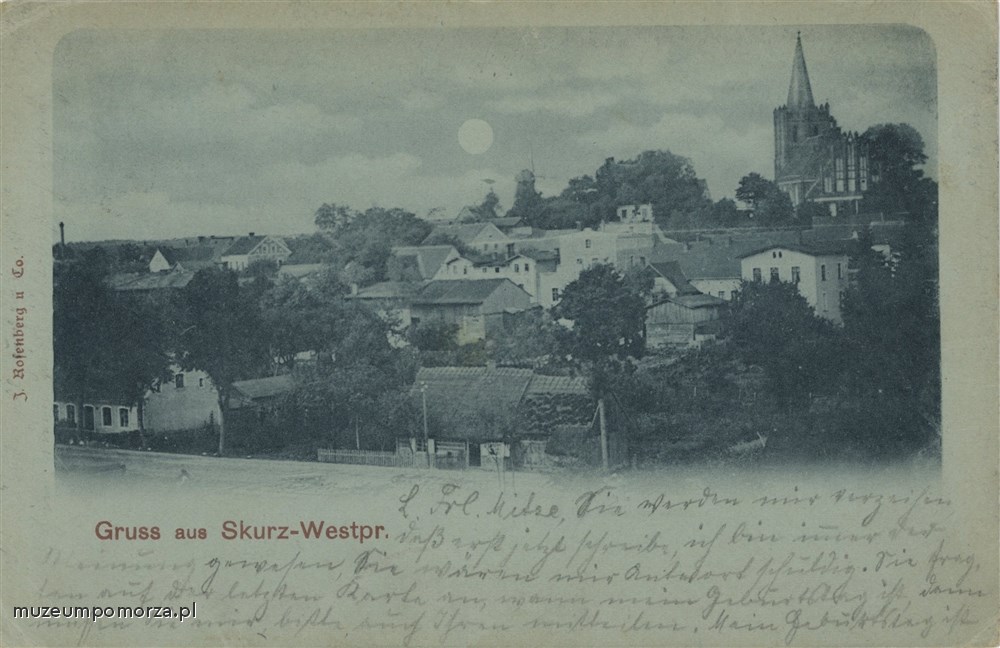 J. Rosenberg u Co.
Gruss aus Skurz-Westpr.
L. Frl. Mitze, Sie werden mir verzeihen
daß erst jetzt schreibe, ich bin immer der
Meinung gewesen, Sie wären mir Antwort schuldig. Sie frag,
ten auf der letzten Karte an, wann mein Geburtstag ist, dann
müssen Sie mir bitte auch Ihren mitteilen. Mein Geburtstag ist
muzeumpomorza.pl